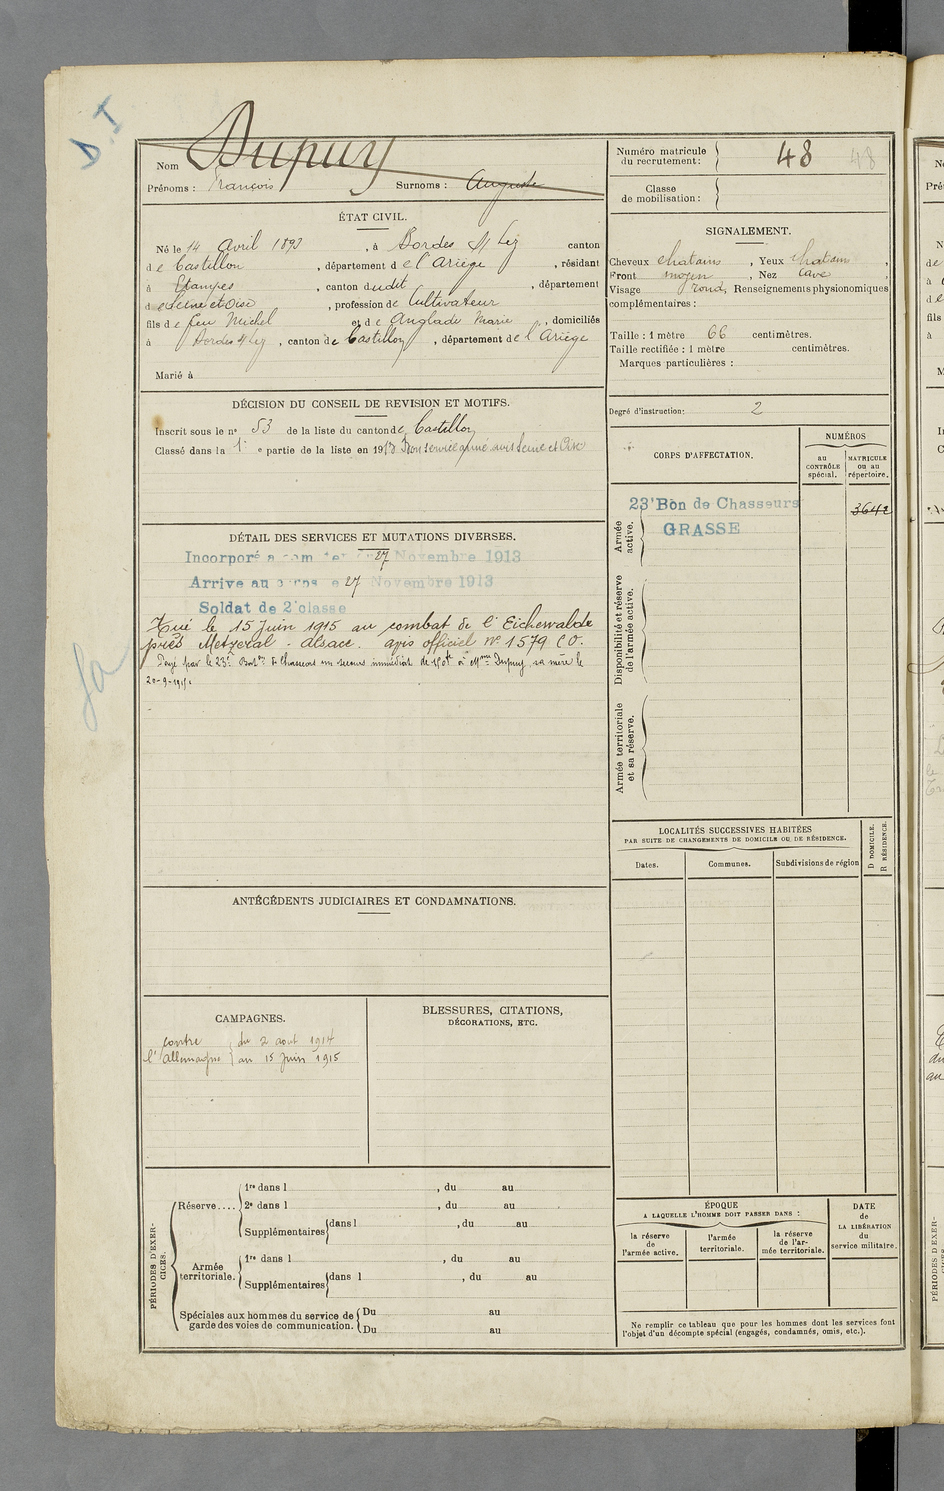 D.I
Nom Dupuy
Prénoms : François Surnoms : Auguste
ÉTAT CIVIL.
Né le 14 Avril 1893, à Bordes s/ Lez canton
de Castillon, département de l'Ariège, résidant
à Etampes, canton dudit, département
de Seine et Oise, profession de Cultivateur
fils de feu Michel et de Anglade Marie, domiciliés
à Bordes s/ Lez, canton de Castillon, département de l'Ariège
Marié à
DÉCISION DU CONSEIL DE REVISION ET MOTIFS.
Inscrit sous le n° 53 de la liste du canton de Castillon
Classé dans la 1e partie de la liste en 1913 Bon service armé avis Seine et Oise
DÉTAIL DES SERVICES ET MUTATIONS DIVERSES.
Incorporé à compter du 27 Novembre 1913
Arrivé au corps le 27 Novembre 1913
Soldat de 2e classe
Tué le 15 Juin 1915 au combat de l'Eichewalde
près Metzeral - Alsace. avis officiel n° 1579 CO.
Payé par le 23e Bon de Chasseurs un secours immédiat de 150f à Mme Dupuy, sa mère le
20-9-
ANTÉCÉDENTS JUDICIAIRES ET CONDAMNATIONS.
CAMPAGNES.
contre du 2 aout 1914
l'Allemagne au 15 Juin 1915
BLESSURES, CITATIONS,
DÉCORATIONS, ETC.
PÉRIODES D'EXERCICES.
Réserve....
1re dans l , du au
2e dans l , du au
Supplémentaires dans l , du au
Armée territoriale.
1re dans l , du au
Supplémentaires dans l , du au
Spéciales aux hommes du service de Du au
garde des voies de communication. Du au
Numéro matricule
du recrutement : 48 48
Classe
de mobilisation :
SIGNALEMENT.
Cheveux chatains, Yeux chatain,
Front moyen, Nez cave,
Visage rond, Renseignements physionomiques
complémentaires :
Taille : 1 mètre 66 centimètres.
Taille rectifiée : 1 mètre centimètres.
Marques particulières :
Degré d'instruction : 2
CORPS D'AFFECTATION.
NUMÉROS
au
CONTRÔLE
spécial.
MATRICULE
ou au
répertoire.
Armée
active.
23e Bon de Chasseurs 3642
GRASSE
Disponibilité et réserve
de l'armée active.
Armée territoriale
et sa réserve.
LOCALITÉS SUCCESSIVES HABITÉES
PAR SUITE DE CHANGEMENTS DE DOMICILE OU DE RÉSIDENCE.
Dates. Communes. Subdivisions de région
D DOMICILE.
R RÉSIDENCE.
ÉPOQUE
A LAQUELLE L'HOMME DOIT PASSER DANS :
la réserve
de
l'armée active.
l'armée
territoriale.
la réserve
de l'ar-
mée territoriale.
DATE
de
LA LIBÉRATION
du
service militaire.
Ne remplir ce tableau que pour les hommes dont les services font
l'objet d'un décompte spécial (engagés, condamnés, omis, etc.).